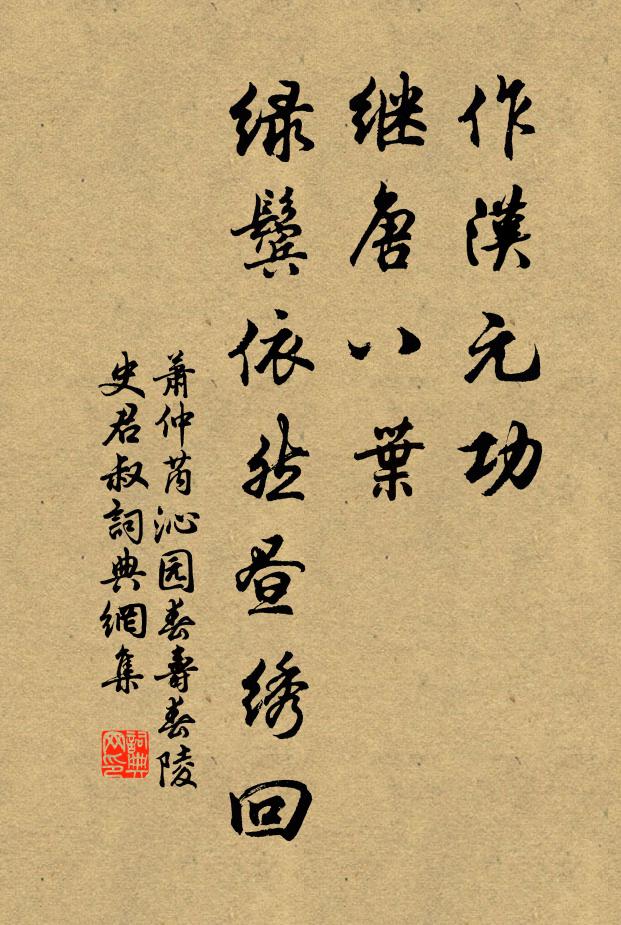 作漢元功
继唐八葉
绿鬓依然昼绣回
萧仲芮沁园春寿春陵
史君叔詞典網集
詞典网印